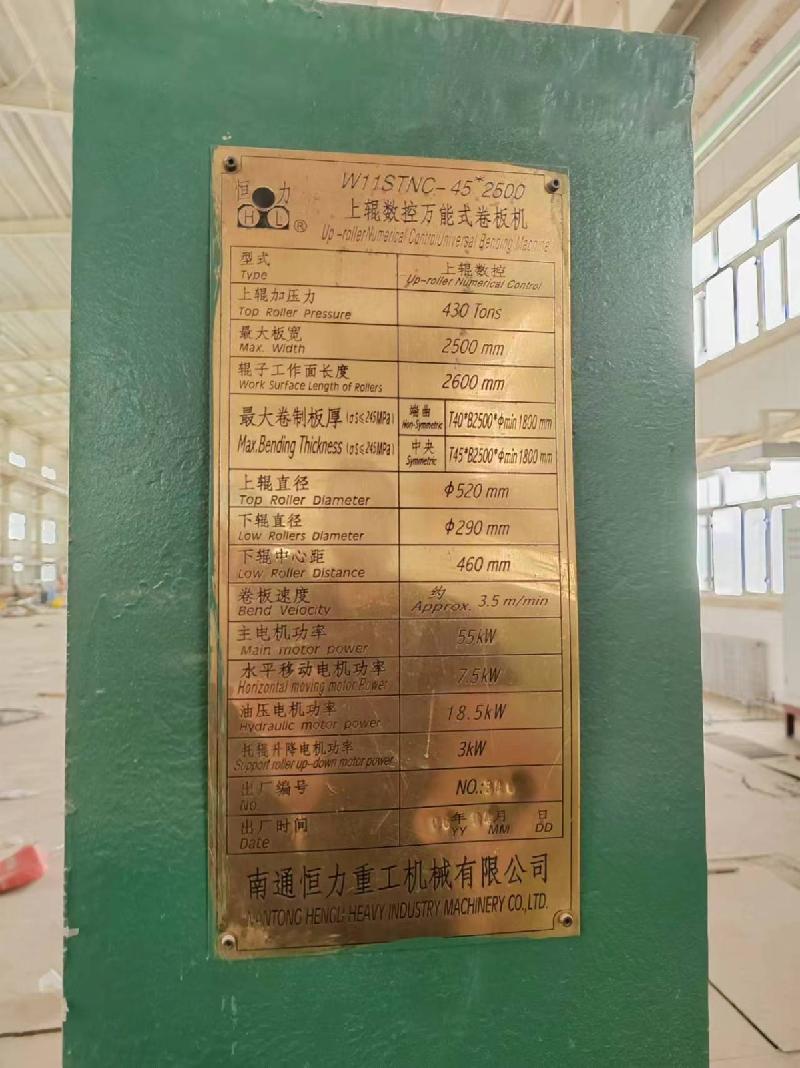 恒力
HL®
W11STNC-45*2500
上辊数控万能式卷板机
Up-roller Numerical Control Universal Bending Machine
型式 上辊数控
Type Up-roller Numerical Control
上辊加压力 430 Tons
Top Roller Pressure
最大板宽 2500 mm
Max. Width
辊子工作面长度 2600 mm
Work Surface Length of Rollers
最大卷制板厚(σs≤245MPa) 端曲 T40*B2500*Φmin1800mm
Non-Symmetric
Max.Bending Thickness (σs≤245MPa) 中央 T45*B2500*Φmin1800mm
Symmetric
上辊直径 Φ520 mm
Top Roller Diameter
下辊直径 Φ290 mm
Low Rollers Diameter
下辊中心距 460 mm
Low Roller Distance
卷板速度 约
Bend Velocity Approx. 3.5 m/min
主电机功率 55kW
Main motor power
水平移动电机功率 7.5kW
Horizontal moving motor Power
油压电机功率 18.5kW
Hydraulic motor power
托辊升降电机功率 3kW
Support roller up-down motor power
出厂编号 NO.:
No.
出厂时间 年 月 日
Date YY MM DD
南通恒力重工机械有限公司
NANTONG HENGLI HEAVY INDUSTRY MACHINERY CO.,LTD.